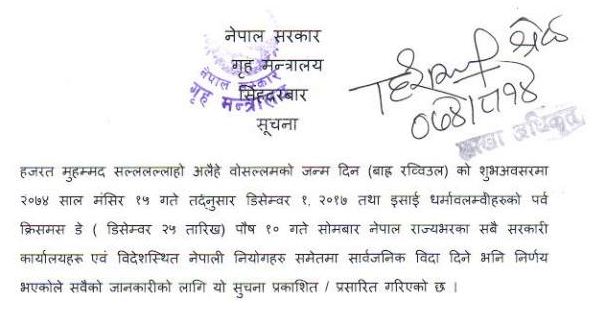 नेपाल सरकार
गृह मन्त्रालय
सिंहदरबार
सूचना
नेपाल सरकार
गृह मन्त्रालय
०७४।८।१४
शाखा अधिकृत
हजरत मुहम्मद सल्लललाहो अलैहे वोसल्लमको जन्म दिन (बाह्र रव्विउल) को शुभअवसरमा
२०७४ साल मंसिर १५ गते तर्द्नुसार डिसेम्वर १, २०१७ तथा इसाई धर्मावलम्वीहरुको पर्व
क्रिसमस डे ( डिसेम्वर २५ तारिख) पौष १० गते सोमबार नेपाल राज्यभरका सबै सरकारी
कार्यालयहरू एवं विदेशस्थित नेपाली नियोगहरु समेतमा सार्वजनिक विदा दिने भनि निर्णय
भएकोले सवैको जानकारीको लागि यो सुचना प्रकाशित / प्रसारित गरिएको छ ।